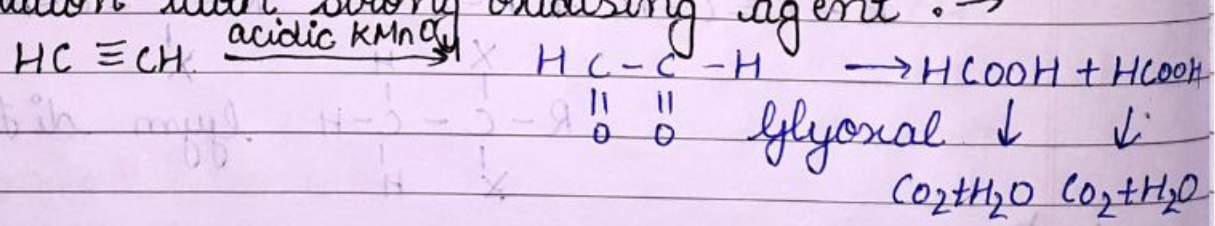 strong oxidising agent. →
acidic KMnO4
HC ≡ CH ⟶ H C - C - H ⟶ HCOOH + HCOOH
|| ||
O O Glyoxal ↓ ↓
CO2+H2O CO2+H2O